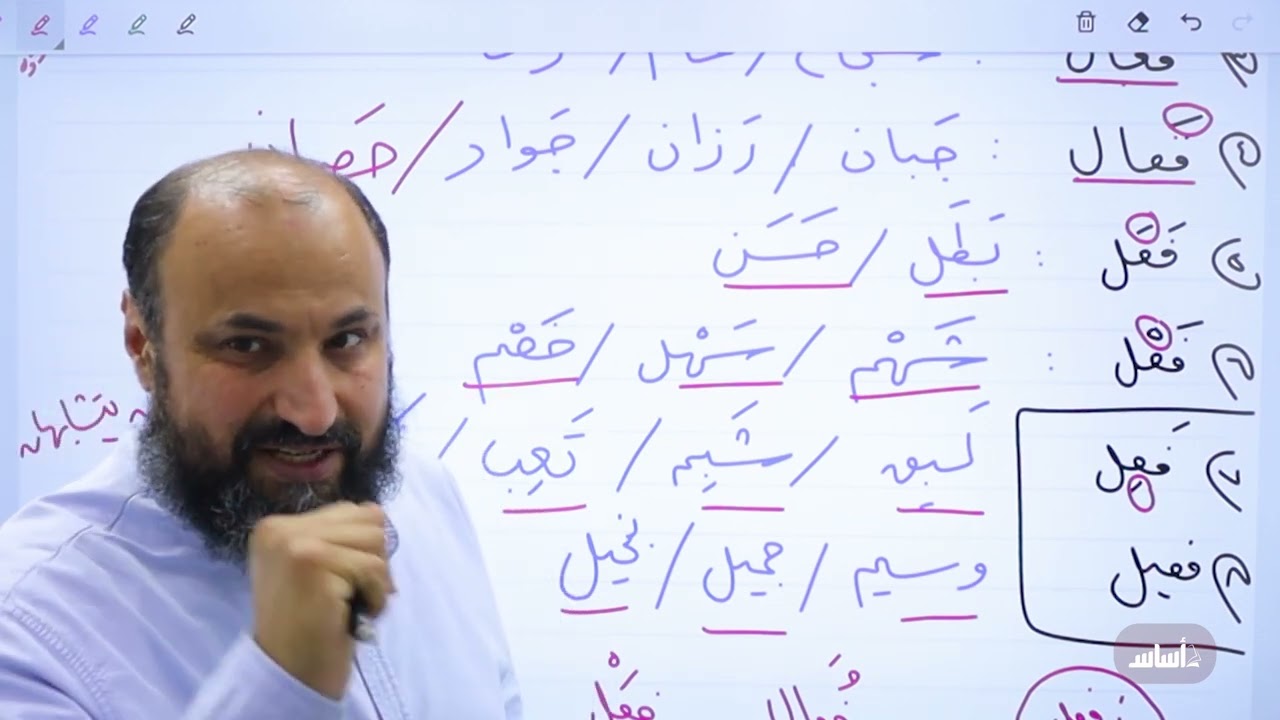 فعال
٤) فَعال : جَبان / رَزان / جَواد / حَصان
٥) فَعَل : بَطَل / حَسَن
٦) فَعْل : شَهْم / سَهْل /
٧) فَعِل لَبِق / شَبِم / تَعِب /
فعيل وسيم / جميل / بخيل
فُعال فَعْل
أساس